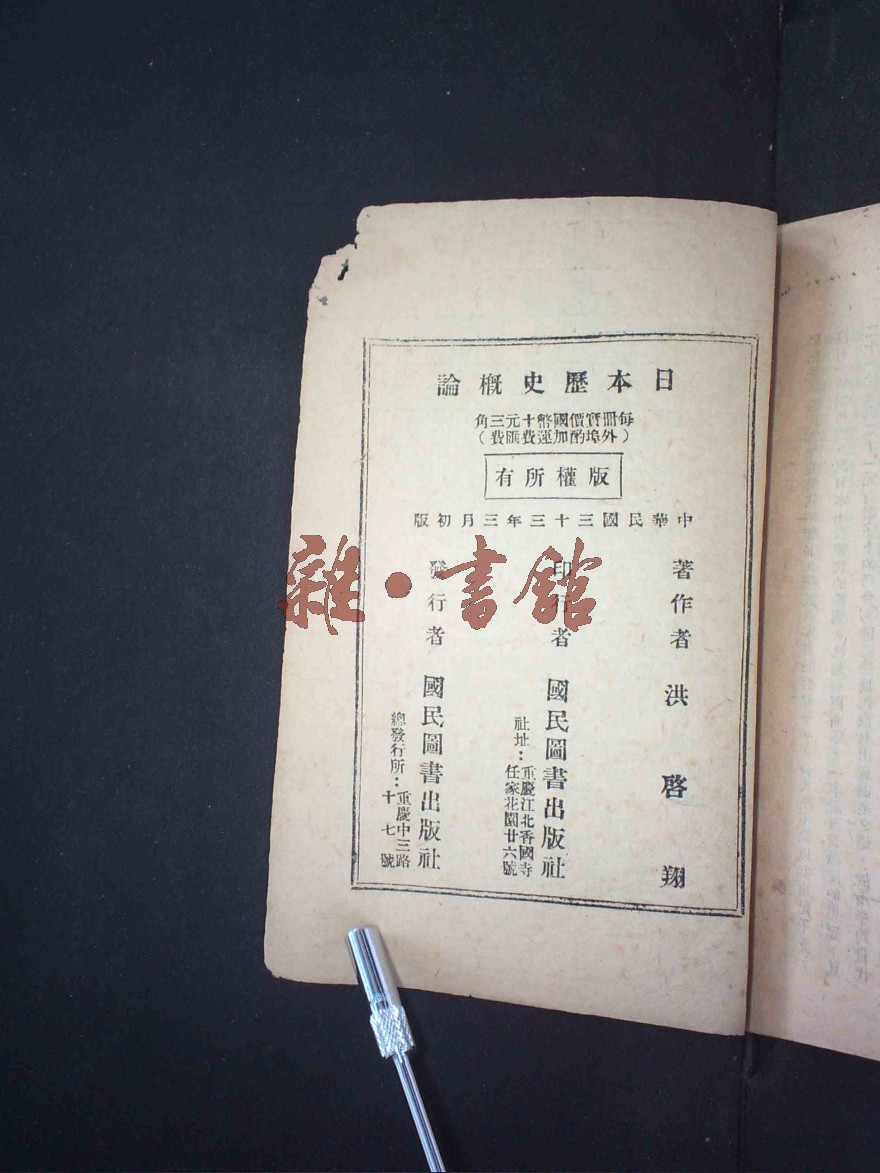 日本歷史概論
每冊實價國幣十元三角
（外埠酌加運費匯費）
版權所有
中華民國三十三年三月初版
著作者 洪啓翔
印行者 國民圖書出版社
社址：重慶江北香國寺
任家花園廿六號
發行者 國民圖書出版社
總發行所：重慶中三路
十七號
雜·書館